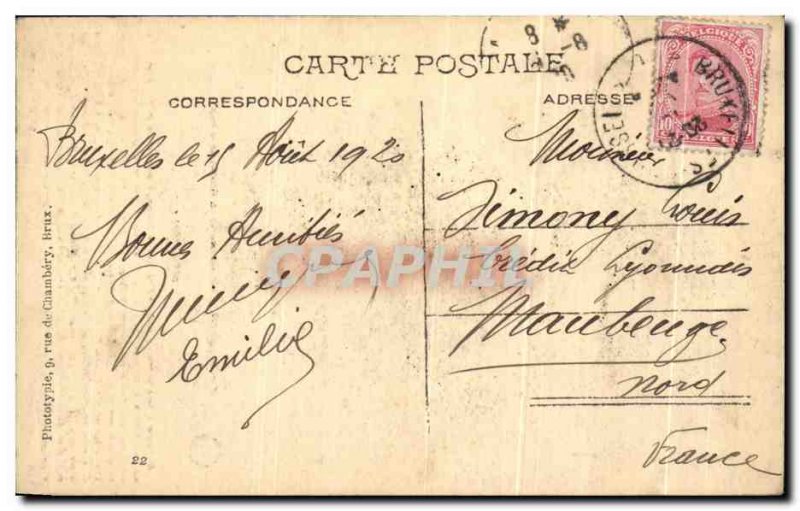 CARTE POSTALE
CORRESPONDANCE
ADRESSE
BELGIQUE
10
BELGIE
BRUXELLES
BRUSSEL
8
8
Bruxelles le 15 Août 1920
Bonnes Amitiés
Emilie
Monsieur
Simony Louis
Crédit Lyonnais
Maubeuge
Nord
France
CPAPHIL
Phototypie, 9, rue de Chambéry, Brux.
22